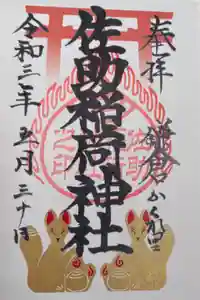 奉拝
鎌倉かくれ里
佐助稲荷神社
令和三年五月三十日